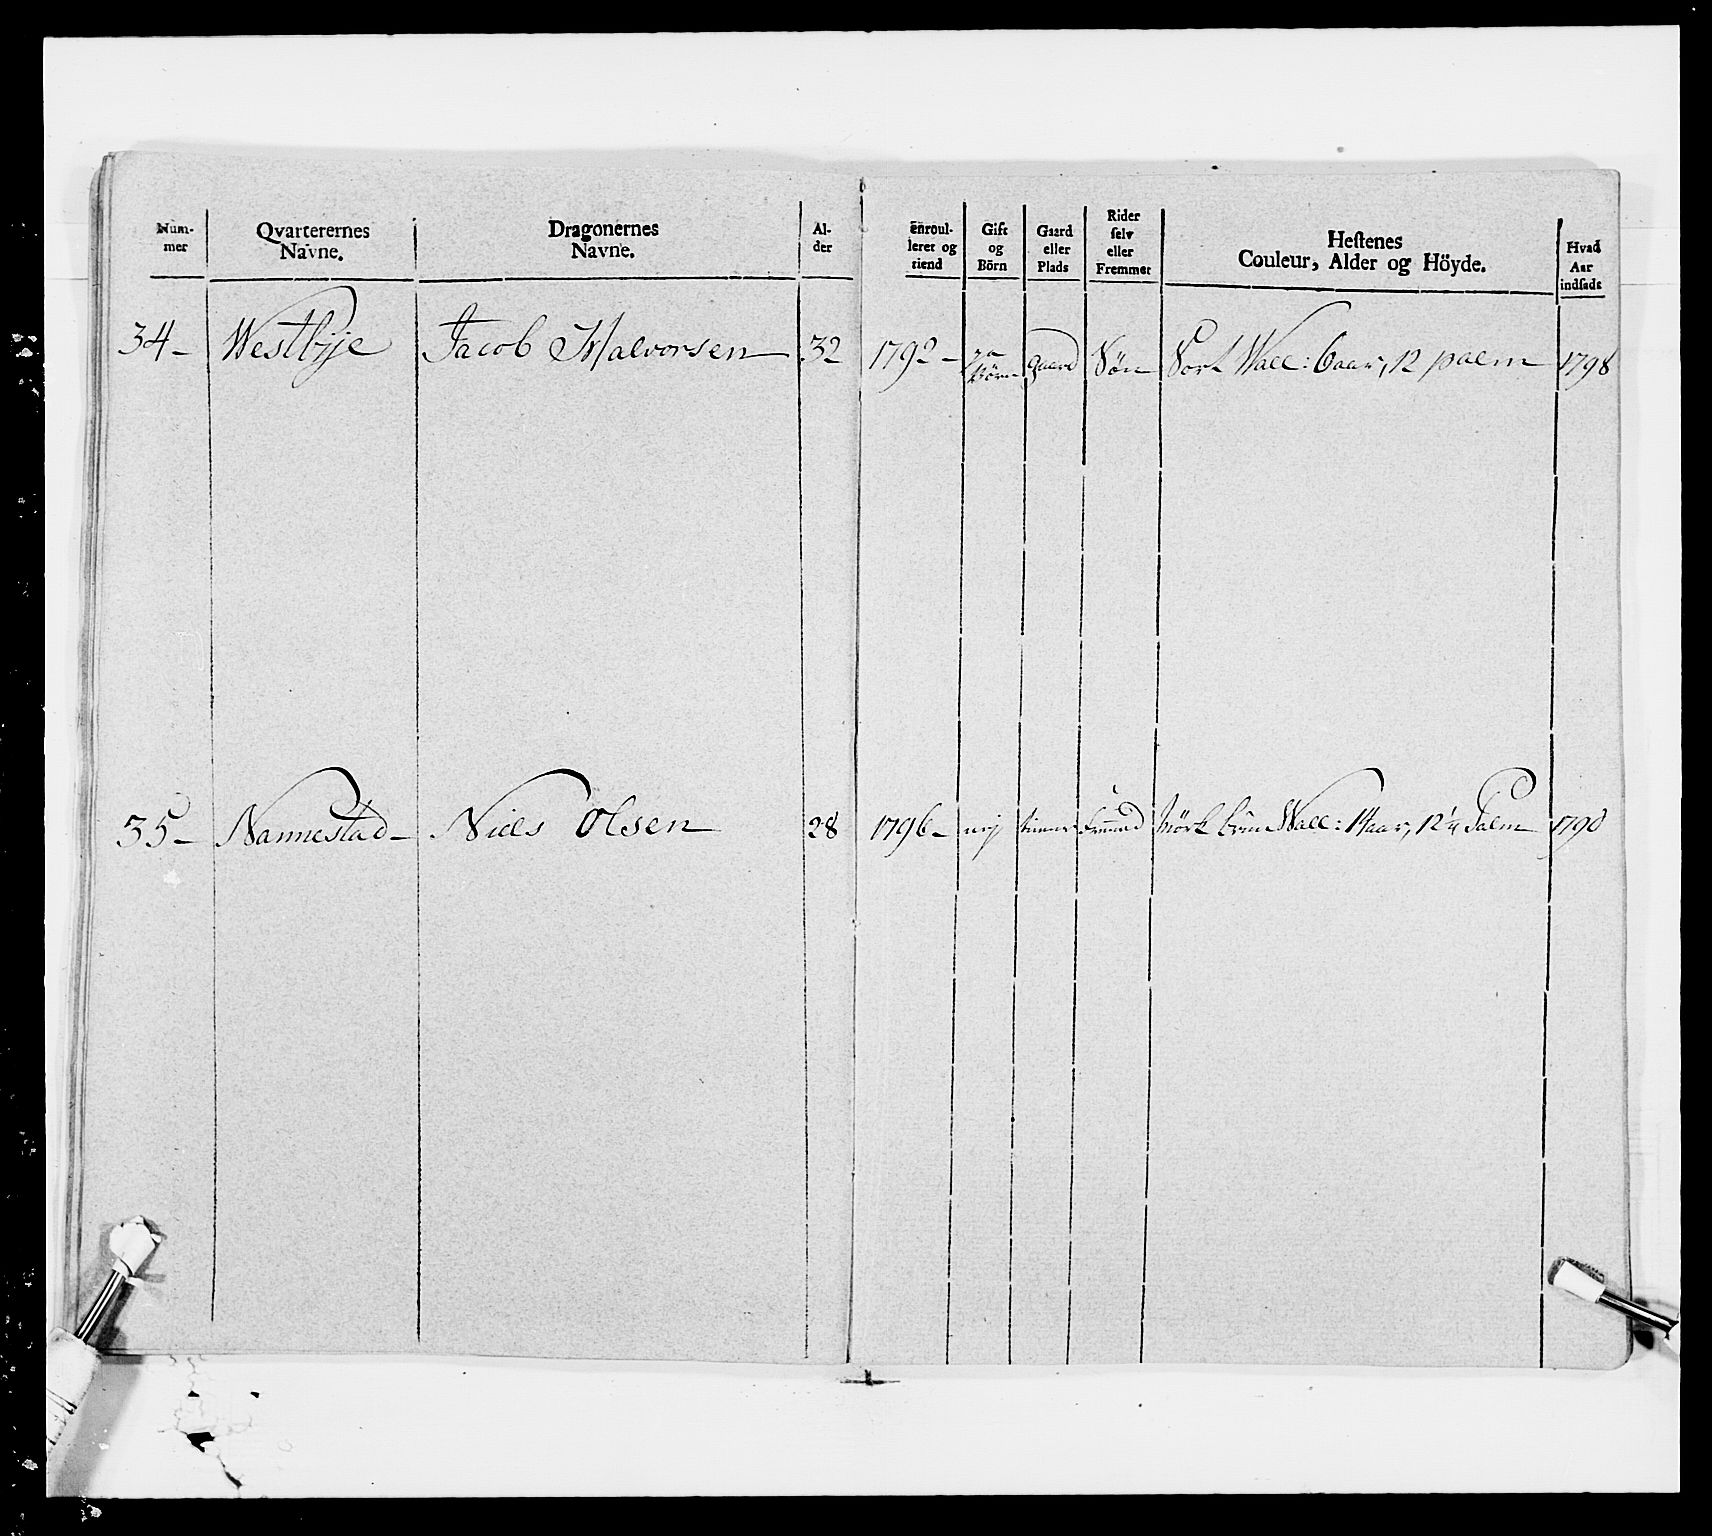 Num-
mer
Qvarterernes
Navne.
Dragonernes
Navne.
Al-
der
Enroul-
leret og
tiend
Gift
og
Börn
Gaard
eller
Plads
Rider
selv
eller
Fremmet
Hestenes
Couleur, Alder og Höyde.
Hvad
Aar
indsads
34- Westbye Jacob Halvorsen 32 1792- ja gaard Sön Sort Wall: 6 aar, 12 palm 1798
Börn
35- Nannestad- Niels Olsen 28 1796- nej tiener Fremmed Mörk brun Wall: 14 aar, 12 1/4 Palm 1790